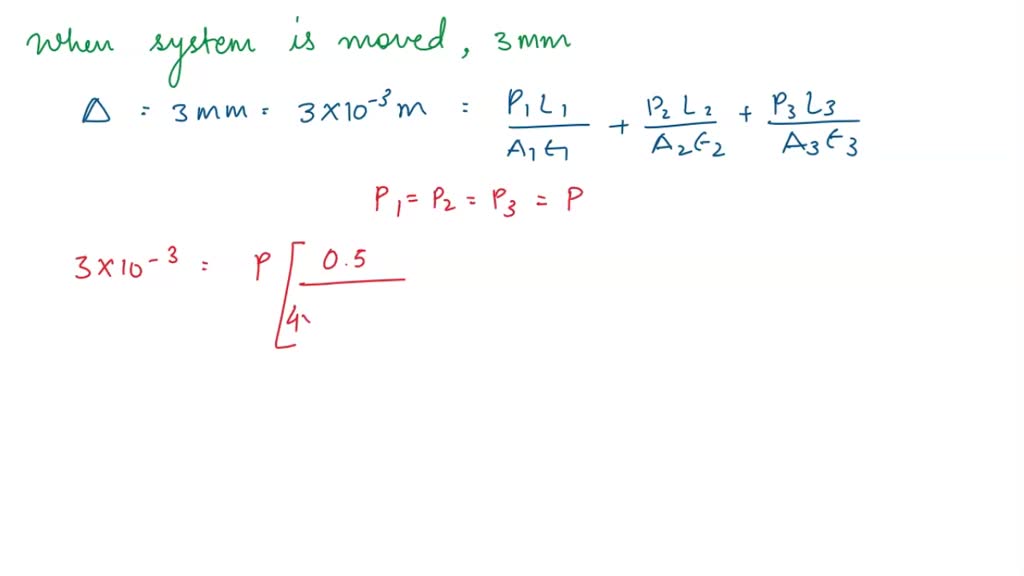 When system is moved, 3mm
Δ = 3mm = 3×10⁻³ m = P₁L₁/A₁E₁ + P₂L₂/A₂E₂ + P₃L₃/A₃E₃
P₁ = P₂ = P₃ = P
3×10⁻³ = P [ 0.5
4